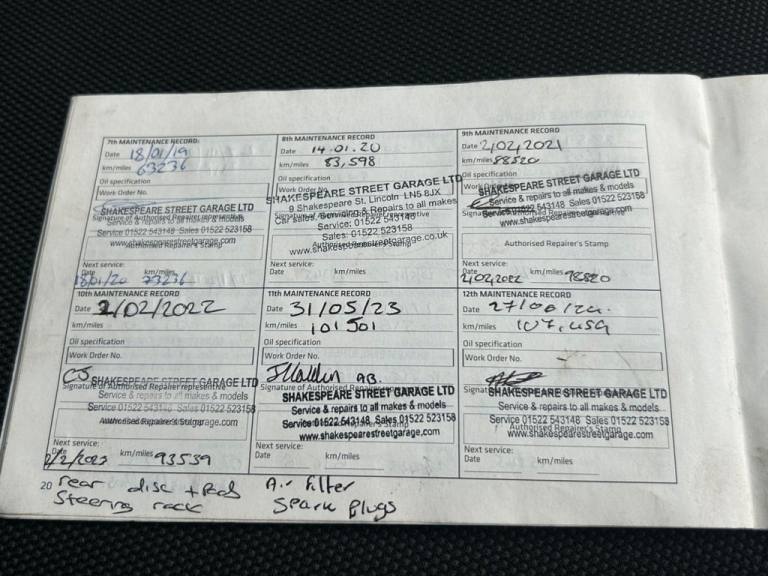 7th MAINTENANCE RECORD:
Date 18/01/19
km/miles 63236
Oil specification
Work Order No.
SHAKESPEARE STREET GARAGE LTD
Service & repairs to all makes & models
Service 01522 543148 Sales 01522 523158
www.shakespearestreetgarage.com
Authorised Repairer's Stamp
Next service:
Date 18/01/20 km/miles 73236
8th MAINTENANCE RECORD
Date 14.01.20
km/miles 83,598
Oil specification
Work Order No.
SHAKESPEARE STREET GARAGE LTD
9 Shakespeare St. Lincoln LN5 8JX
Car sales. Servicing & Repairs to all makes
Service: 01522 543148
Sales: 01522 523158
Authorised Repairer's Stamp
www.shakespearestreetgarage.co.uk
Next service:
Date km/miles
9th MAINTENANCE RECORD
Date 2/02/2021
km/miles 88520
Oil specification
Work Order No.
SHAKESPEARE STREET GARAGE LTD
Service & repairs to all makes & models
Service 01522 543148 Sales 01522 523158
www.shakespearestreetgarage.com
Authorised Repairer's Stamp
Next service:
Date 2/02/2022 km/miles 98520
10th MAINTENANCE RECORD
Date 2/02/2022
km/miles
Oil specification
Work Order No.
CJ
Signature of Authorised Repairer representative
SHAKESPEARE STREET GARAGE LTD
Service & repairs to all makes & models
Service 01522 543148 Sales 01522 523158
www.shakespearestreetgarage.com
Authorised Repairer's Stamp
Next service:
Date 2/2/2023 km/miles 93539
11th MAINTENANCE RECORD
Date 31/05/23
km/miles 101501
Oil specification
Work Order No.
AB.
Signature of Authorised Repairer representative
SHAKESPEARE STREET GARAGE LTD
Service & repairs to all makes & models
Service 01522 543148 Sales 01522 523158
Authorised Repairer's Stamp
www.shakespearestreetgarage.com
Next service:
Date km/miles
12th MAINTENANCE RECORD
Date
km/miles
Oil specification
Work Order No.
SHAKESPEARE STREET GARAGE LTD
Service & repairs to all makes & models
Service 01522 543148 Sales 01522 523158
Authorised Repairer's Stamp
www.shakespearestreetgarage.com
Next service:
Date km/miles
20 rear disc + Pads
Steering rack
Air filter
Spark Plugs